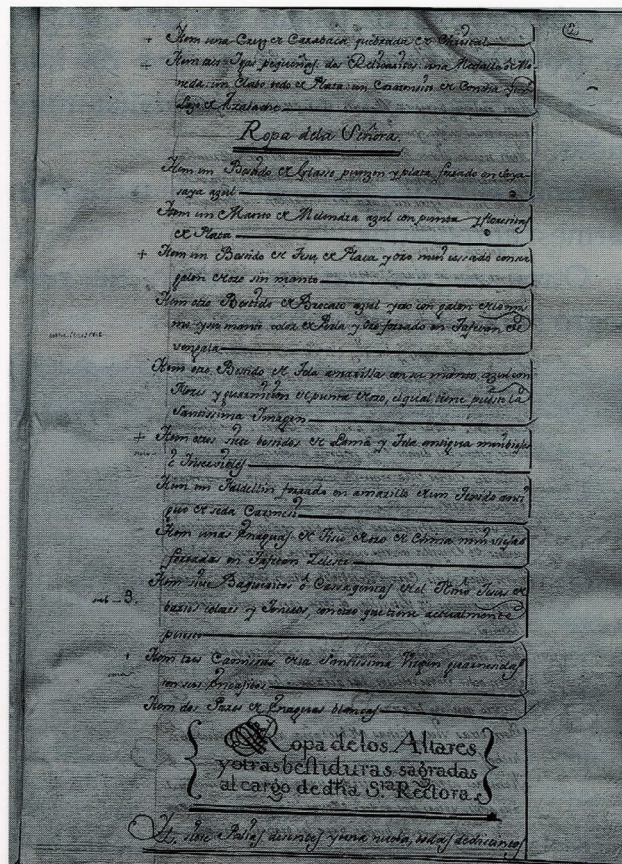 Item una Cruz de Carabaca quebrada de Christal
Item tres Igas pequeñas, dos Relicarios: una Medalla de Mo-
neda: un Clabo todo de Plata: un Corazonsin de Concha
y de Azabache
Ropa dela Señora.
Item un Bestido de Glasse punzon y plata, forrado en
saya azul
Item un Manto de Melendra azul con punta y floresitas
de Plata
Item un Bestido de Tisu de Plata y oro mui ussado con su
galon de oro sin manto
Item otro Bestido de Brocato azul y oro con galon de lo mis-
mo y su manto color de Perla y oro forrado en Tafetan de
vengala
Item otro Bestido de Tela amarilla con su manto azul con
flores y guarnicion de punta de oro, el qual tiene puesto la
Santissima Imagen
Item otros siete bestidos de Lama y Tela antigua mui biejos
è Inservibles
Item un Faldellin forrado en amarillo de un Texido anti-
guo de seda Carmesi
Item unas Enaguas de Tisu de oro de China mui viejas
forradas en Tafetan Zeleste
sub - 3.
Item siete Baqueritos ò Casaquitas de el Niño Jesus de
barios colores y Generos, con otro que tiene actualmente
puesto
Item tres Camissas de la Santissima Virgen guarnecidas
con sus Encajitos
Item dos Pares de Enaguas blancas
Ropa de los Altares
y otras bestiduras sagradas
al cargo de dha Sra Rectora.
Yt. siete Palios desentes y una nueba, todas de distintos